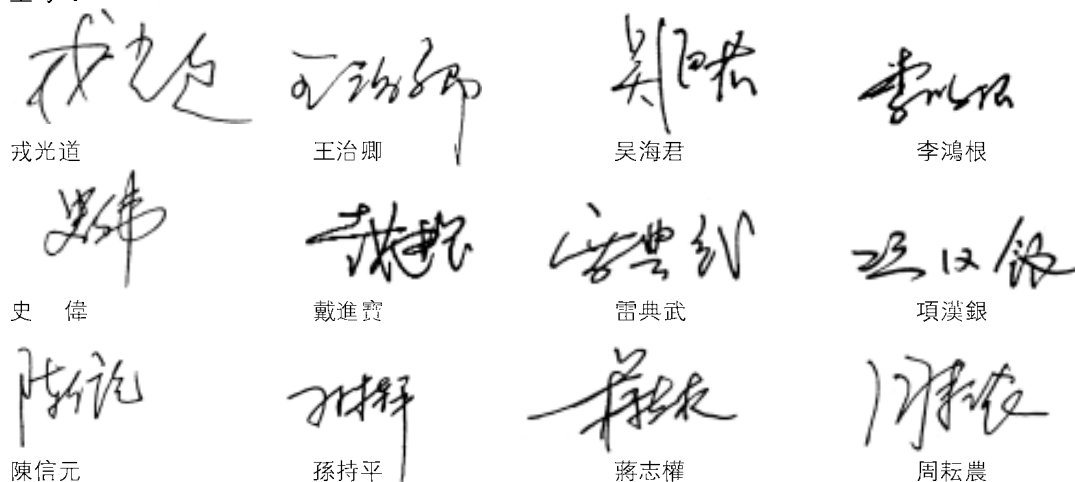 戎光道 王治卿 吴海君 李鴻根
史 偉 戴進寶 雷典武 項漢銀
陳信元 孫持平 蔣志權 周耘農